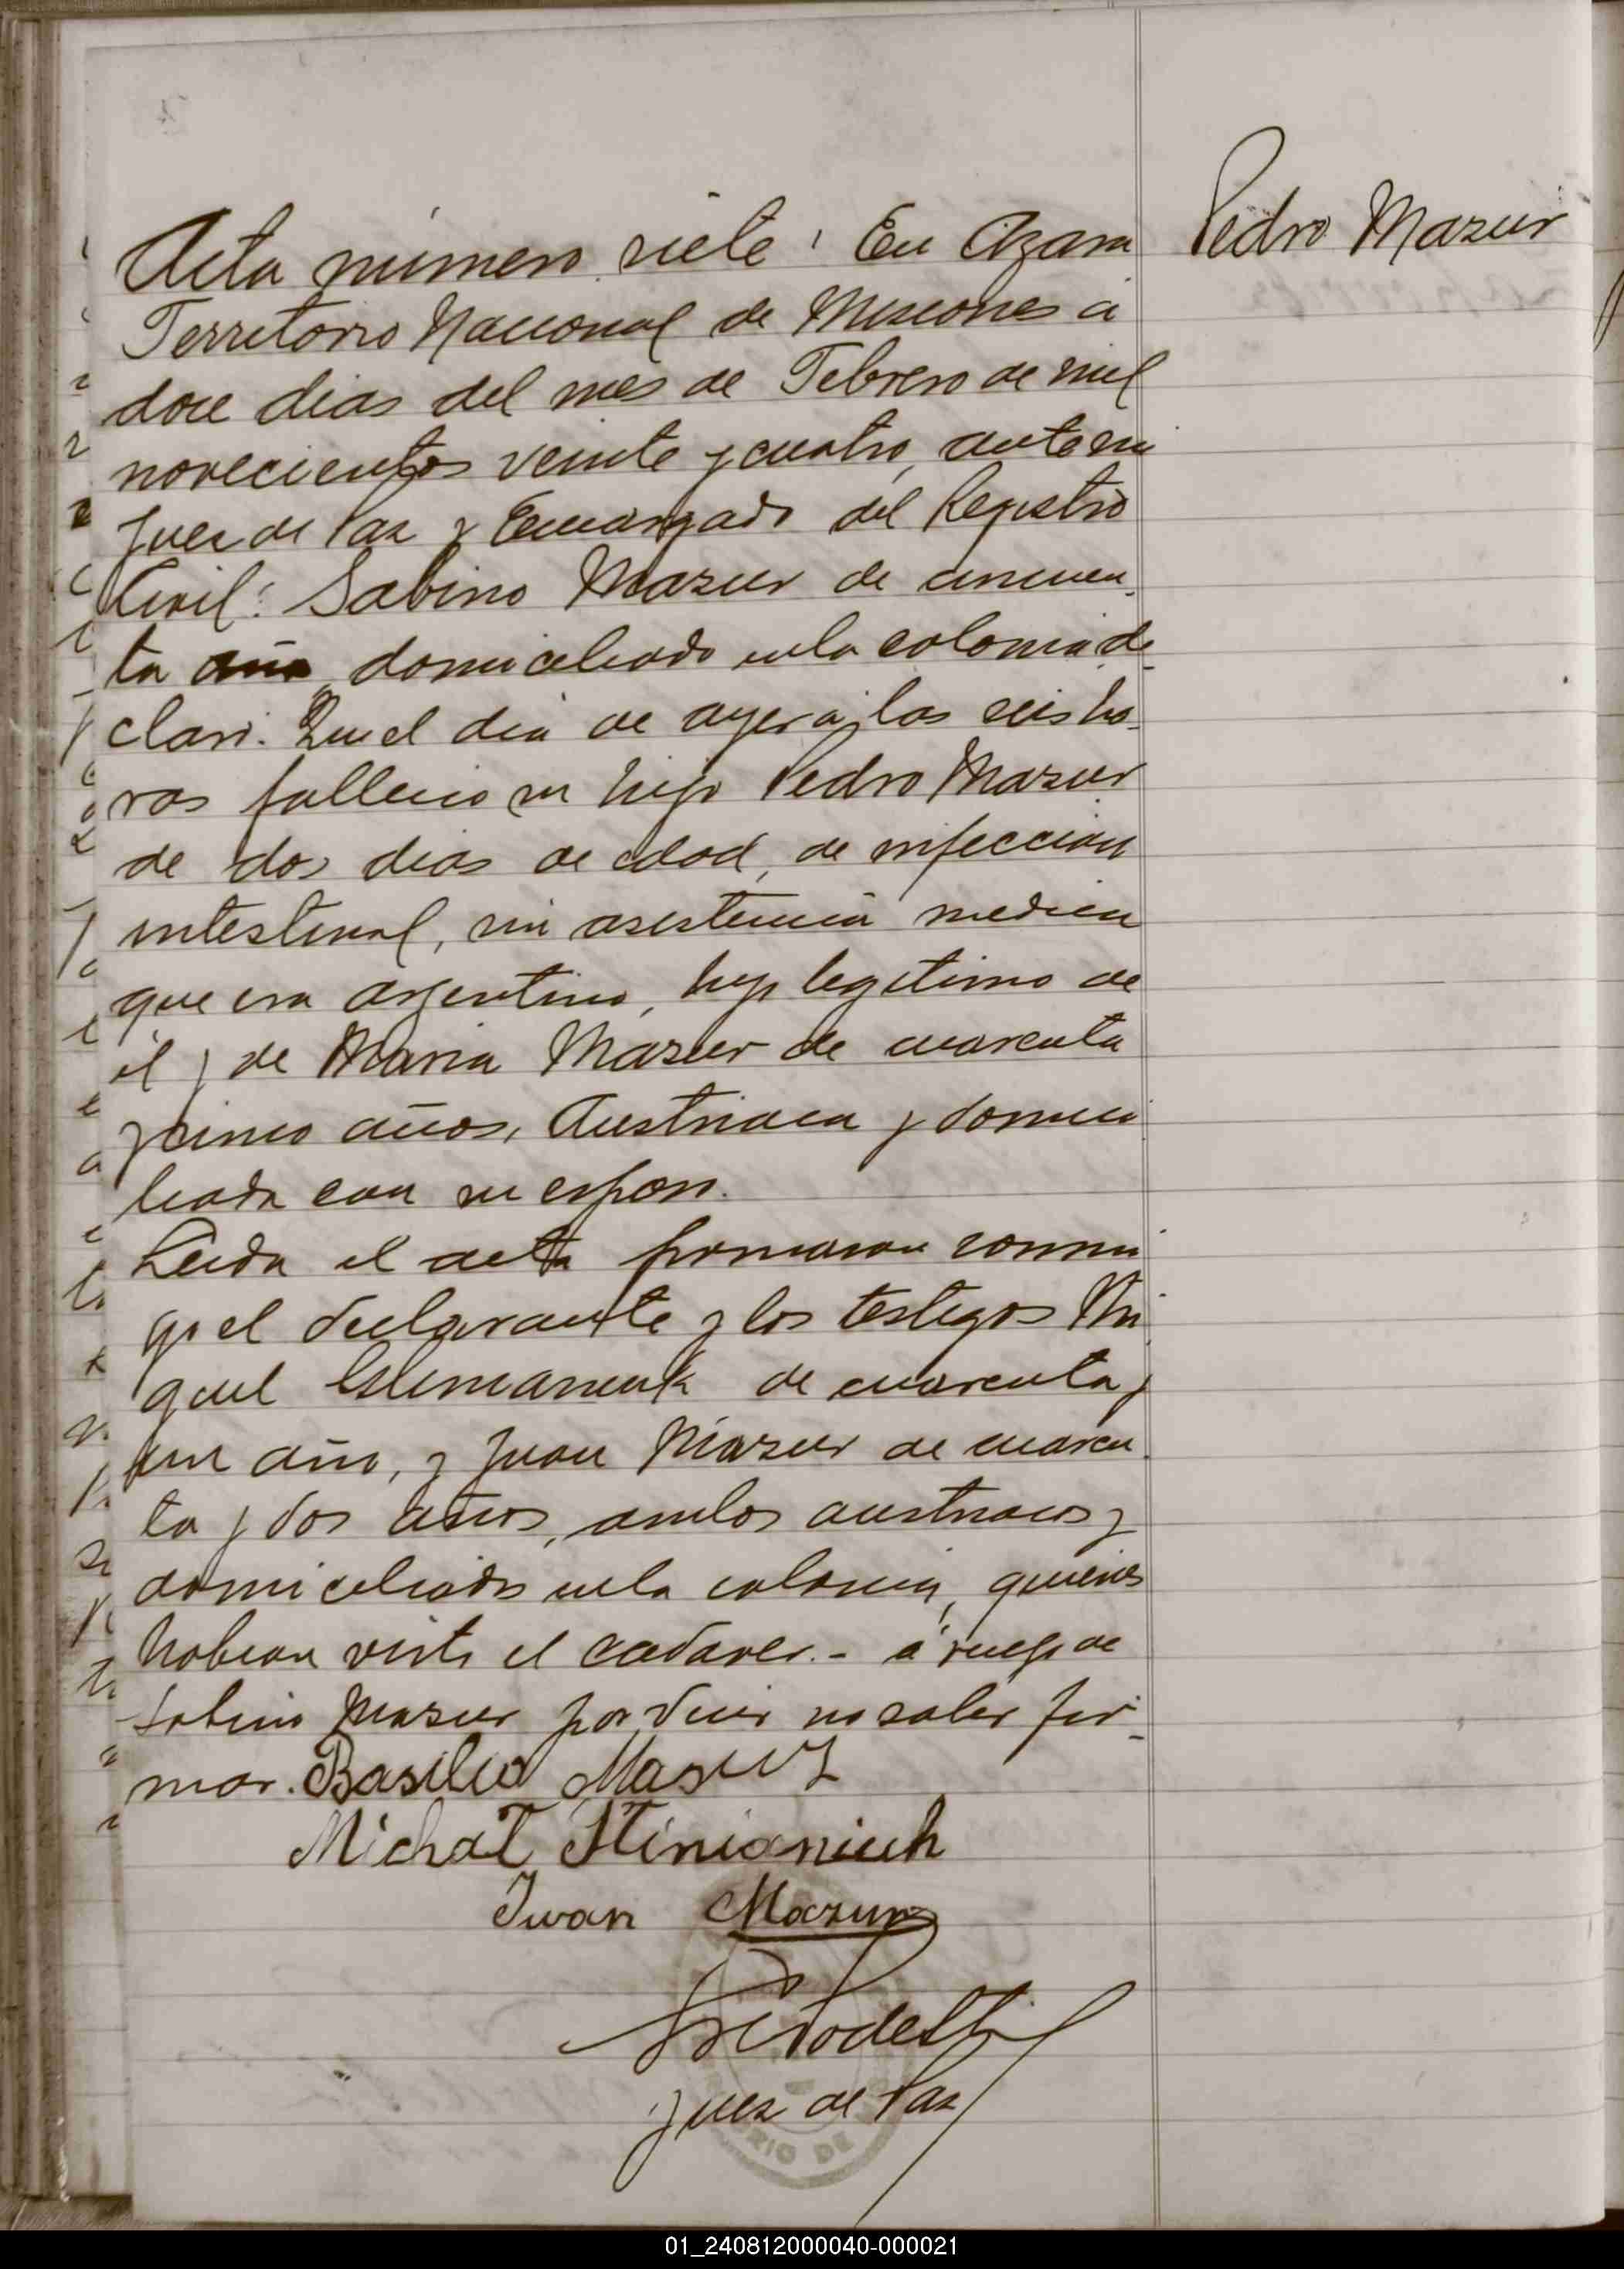 Pedro Mazur
Acta número siete: En Azara
Territorio Nacional de Misiones á
doce dias del mes de Febrero de mil
novecientos veinte y cuatro, ante mi
Juez de Paz y Encargado del Registro
Civil: Sabino Mazur de cincuen
ta domiciliado en la colonia de
claró. Que el dia de ayer á las seis ho
ras fallecio su hijo Pedro Mazur
de dos dias de edad, de infeccion
intestinal, sin asistencia medica
que era argentino, hijo legitimo de
él y de Maria Mazur de cuarenta
y cinco años, Austriaca y domici
liada con su esposo.
Leida el acta firmaron conmi
go el declarante y los testigos Mi
guel de cuarenta y
un año, y Juan Mazur de cuaren
ta y dos años, ambos austriacos y
domiciliados en la colonia, quienes
habian visto el cadaver.- á ruego de
Sabino Mazur por decir no saber fir
mar. Basilio Masur
Michał
Iwan Mazur
Juez de Paz
RIO DE
01_240812000040-000021